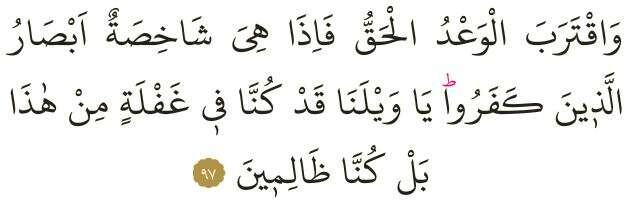 وَاقْتَرَبَ الْوَعْدُ الْحَقُّ فَاِذَا هِىَ شَاخِصَةٌ اَبْصَارُ
الَّذٖينَ كَفَرُواؕ يَا وَيْلَنَا قَدْ كُنَّا فٖى غَفْلَةٍ مِنْ هٰذَا
بَلْ كُنَّا ظَالِمٖينَ ٩٧